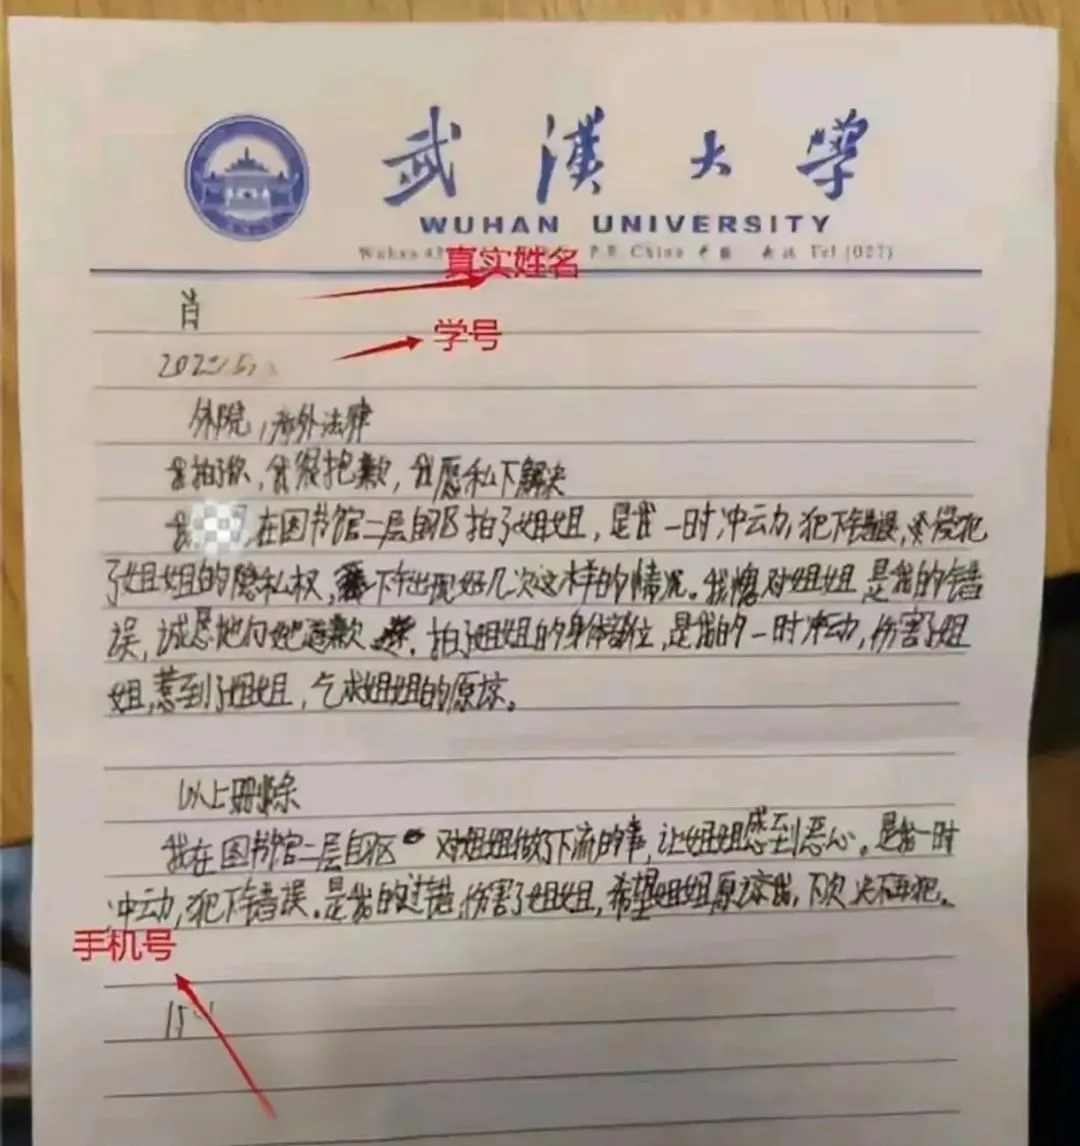 武漢大學
WUHAN UNIVERSITY
Wuhan 43 P.R.China Tel (027)
真实姓名
肖
学号
202
外院,涉外法律
我拍了你,我很抱歉,我愿私下解决
我 ,在图书馆二层自习区拍了姐姐,是我一时冲动,犯下错误,侵犯
了姐姐的隐私权,下午出现好几次这样的情况。我愧对姐姐,是我的错
误,诚恳地向她道歉,拍了姐姐的身体部位,是我的一时冲动,伤害了姐
姐,惹到了姐姐,乞求姐姐的原谅。
以上删除
我在图书馆二层自习区 对姐姐做了下流的事,让姐姐感到恶心。是我一时
冲动,犯下错误。是我的过错,伤害了姐姐,希望姐姐原谅我,下次决不再犯。
手机号
15